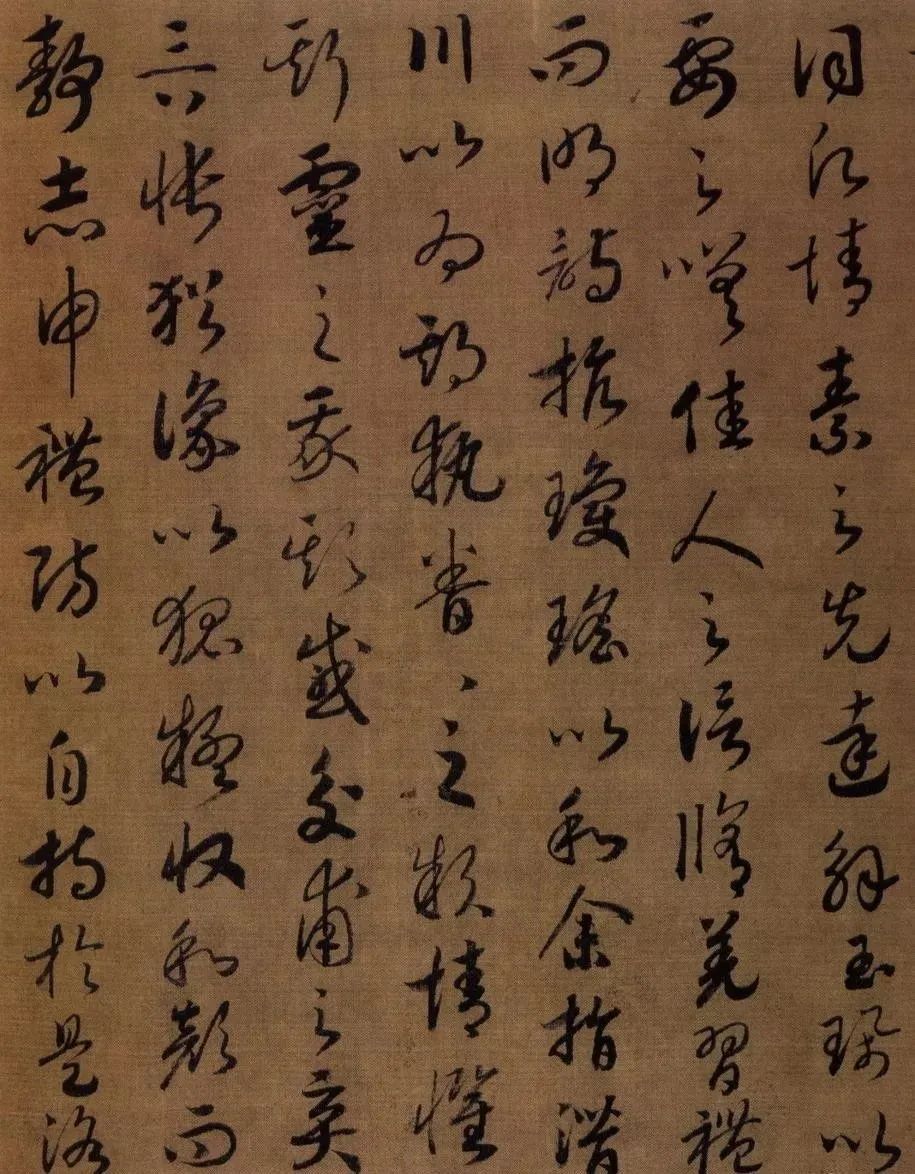 情素之先達解玉珮以
要之嗟佳人之信脩羌習禮
而明詩抗瓊瑤以和余指潛
川以為期執眷々之款情懼
斯靈之我欺感交甫之棄
言悵猶豫以狐疑收和顏而
靜志申禮防以自持於是洛